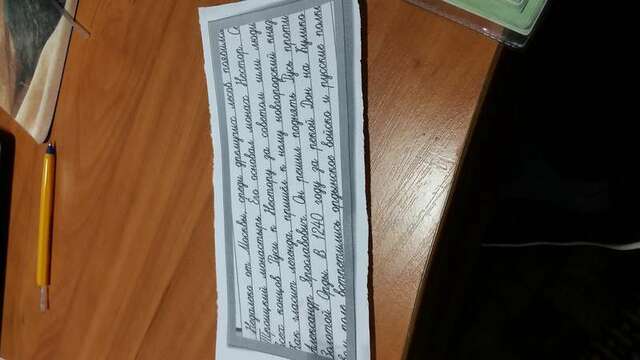 Недалеко от Москвы, среди дремучих лесов появился
Троицкий монастырь. Его основал монах Нестор. Со
всех концов Руси к Нестору за советом шли люди
Как гласит легенда, пришёл к нему новгородский княз
Александр Ярославович. Он решил поднять Русь проти
Золотой Орды. В 1240 году за рекой Дон на Кулико
вом поле встретились ордынское войско и русские полк